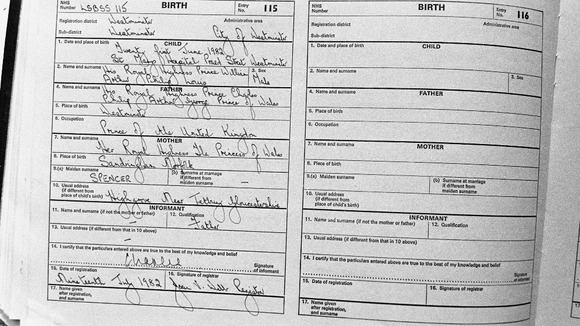 NHS Number LSBSS 115 BIRTH Entry No. 115
Registration district Westminster Administrative area
Sub-district Westminster City of Westminster
1. Date and place of birth CHILD
Twenty first June 1982
St. Mary's Hospital Praed Street Westminster
2. Name and surname His Royal Highness Prince William 3. Sex
Arthur Philip Louis Male
4. Name and surname FATHER
His Royal Highness Prince Charles
Philip Arthur George Prince of Wales
5. Place of birth Westminster
6. Occupation
Prince of the United Kingdom
7. Name and surname MOTHER
Her Royal Highness The Princess of Wales
8. Place of birth Sandringham Norfolk
9.(a) Maiden surname SPENCER (b) Surname at marriage if different from maiden surname —
10. Usual address (if different from place of child's birth) Highgrove Near Tetbury Gloucestershire
INFORMANT
11. Name and surname (if not the mother or father) — 12. Qualification Father
13. Usual address (if different from that in 10 above) —
14. I certify that the particulars entered above are true to the best of my knowledge and belief
Charles Signature of informant
15. Date of registration 16. Signature of registrar
Nineteenth July 1982 Joan V. Webb Registrar
17. Name given after registration, and surname
BIRTH Entry No. 116
NHS Number
Registration district Administrative area
Sub-district
1. Date and place of birth CHILD
2. Name and surname 3. Sex
4. Name and surname FATHER
5. Place of birth
6. Occupation
7. Name and surname MOTHER
8. Place of birth
9.(a) Maiden surname (b) Surname at marriage if different from maiden surname
10. Usual address (if different from place of child's birth)
INFORMANT
11. Name and surname (if not the mother or father) 12. Qualification
13. Usual address (if different from that in 10 above)
14. I certify that the particulars entered above are true to the best of my knowledge and belief
Signature of informant
15. Date of registration 16. Signature of registrar
17. Name given after registration, and surname